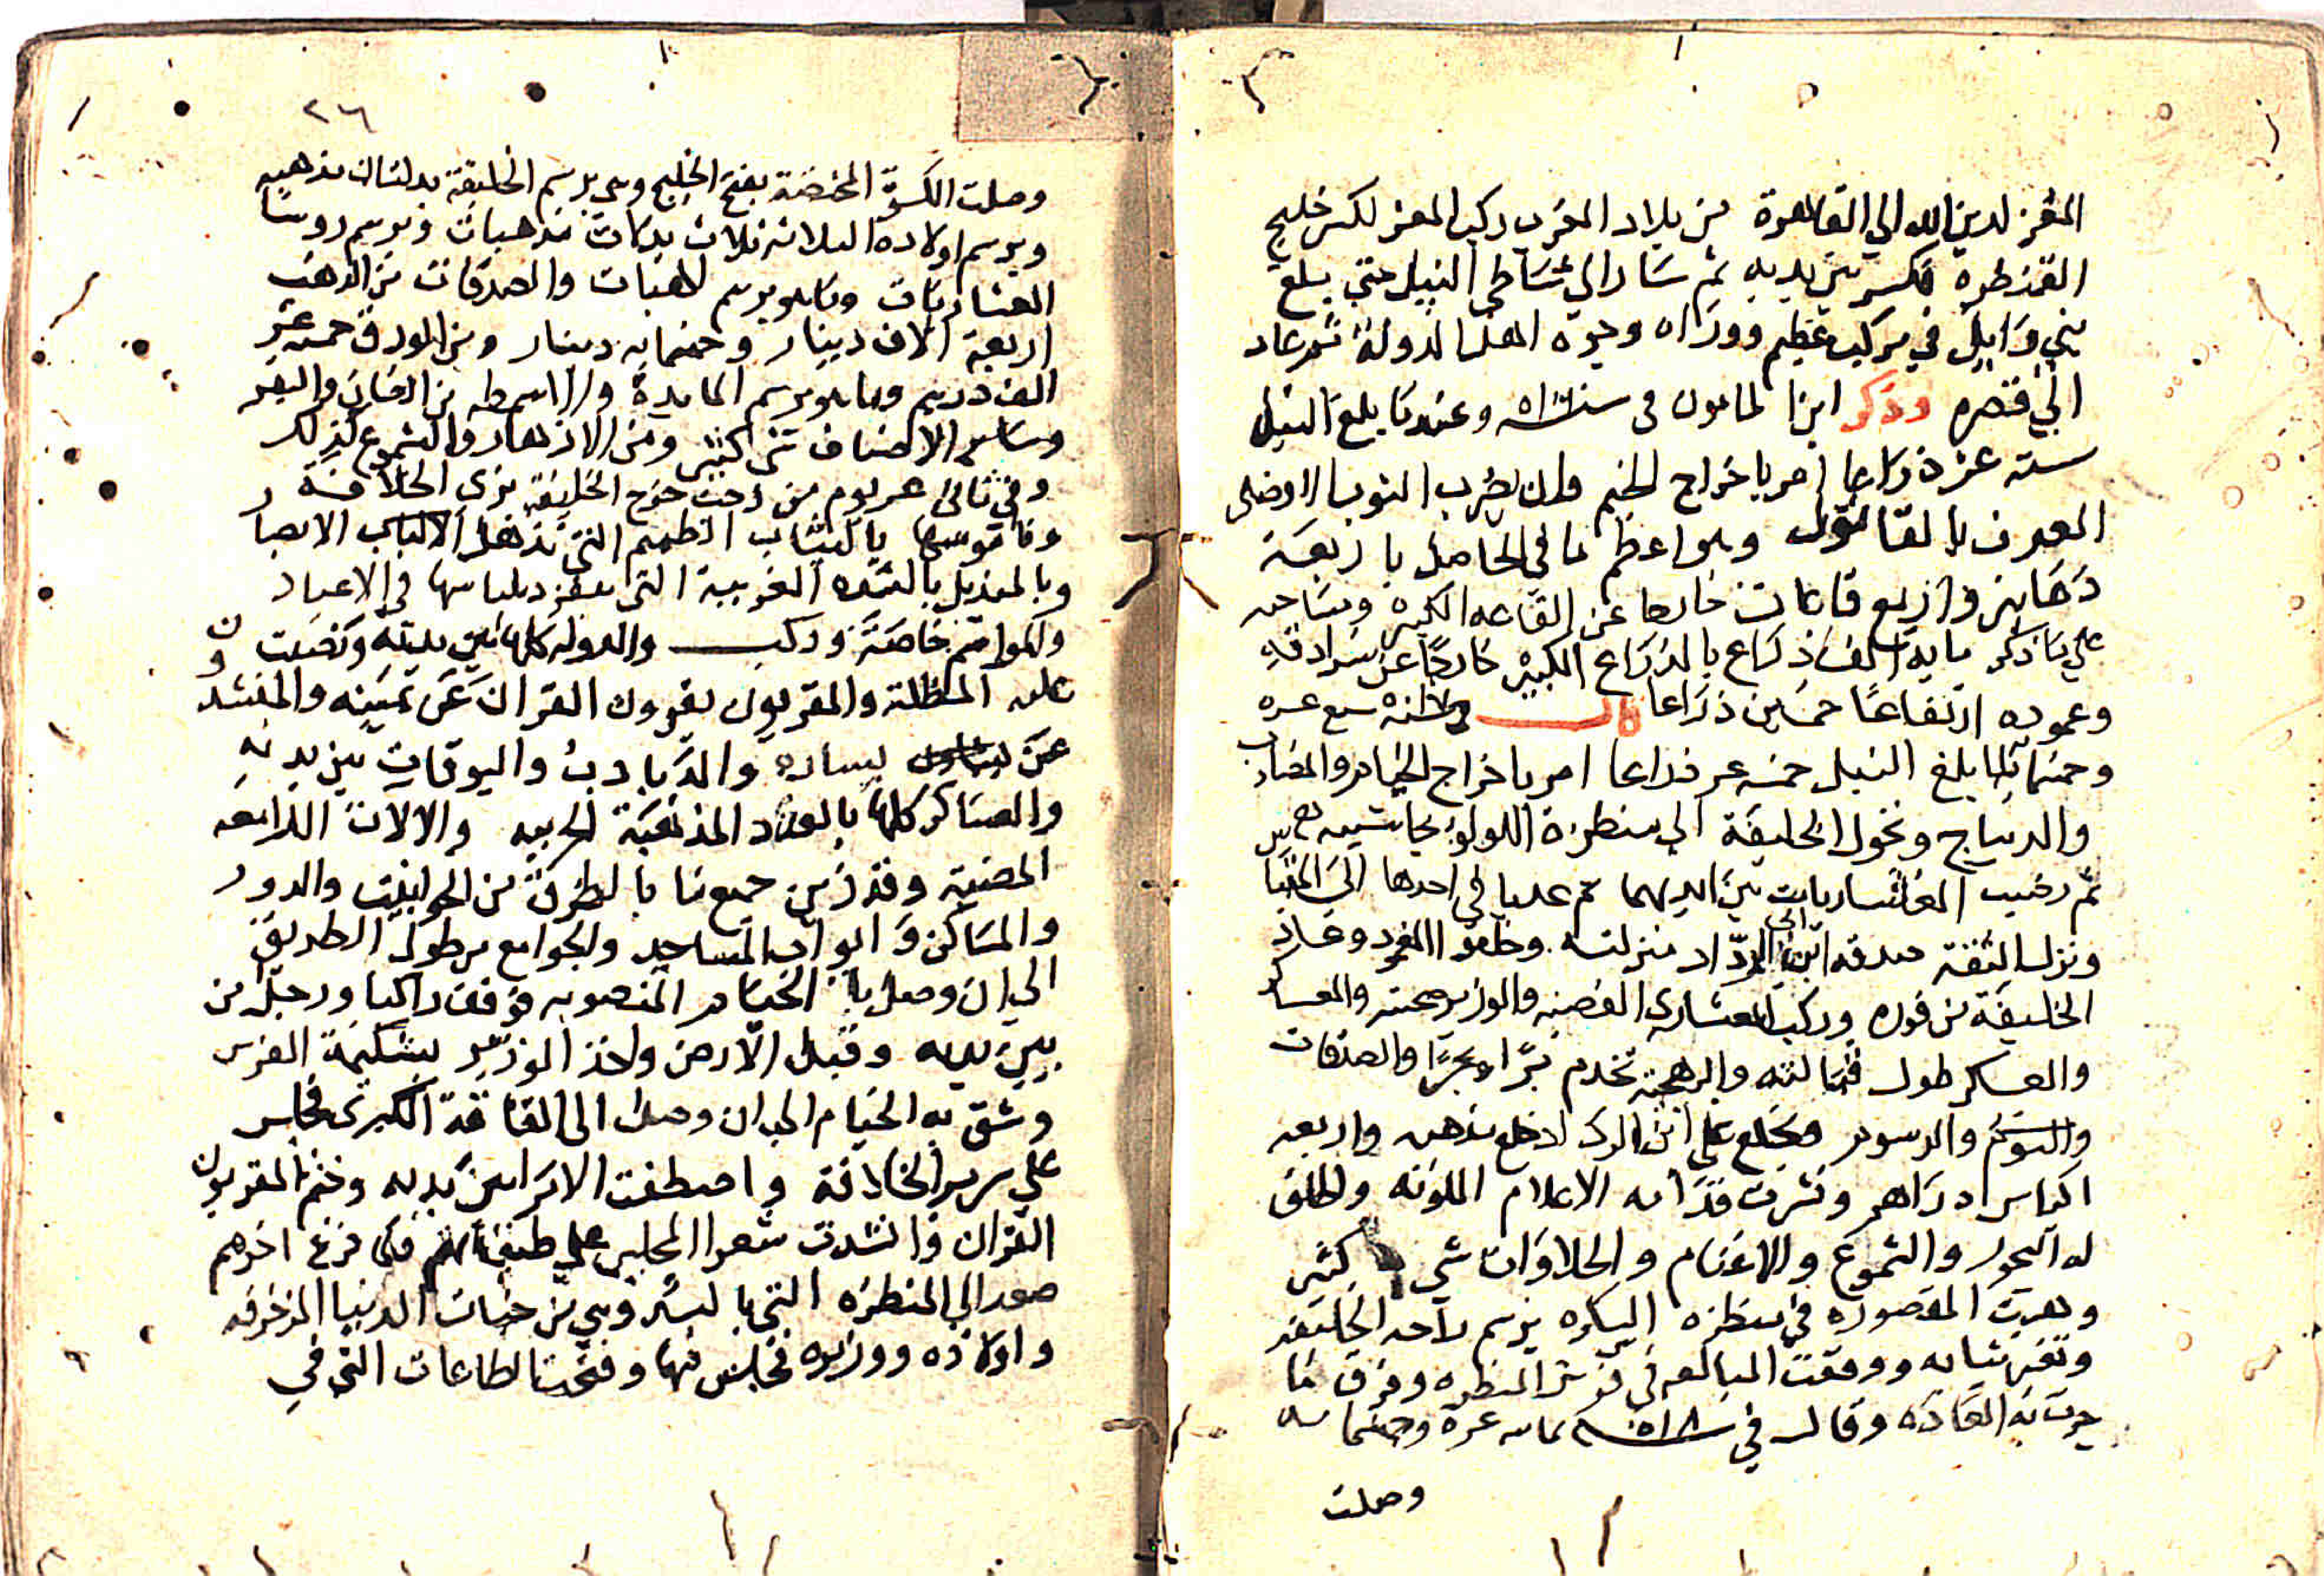 المعز لدين الله الي القاهرة من بلاد المغرب ركب المعز لكسر خليج
القنطره فكسر بين يديه ثم سار الي شاطي النيل حتي بلغ
بني وايل في مركب عظيم ووراه وجوه اهل الدولة ثم عاد
الي قصره وذكر ابن المامون في سنة وعندما بلغ النيل
سته عشر ذراعا امر باخراج الخيم وان يضرب الثوب الافضلي
المعروف بالقاتول وهو اعظم ما في الحاصل باربعة
دهاليز واربع قاعات خارجا عن القاعه الكبيره ومساحته
علي ما ذكر ماية الف ذراع بالذراع الكبير خارجا عن سرادقه
وعموده ارتفاعا خمسين ذراعا وفي سنة سبع عشره
وخمسماية لما بلغ النيل خمسة عشر ذراعا امر باخراج الخيام والمضارب
والديباج وتحول الخليفة الي منظرة اللولوة بحاشيته
ثم رتبت العشاريات بين ايديهما ثم عديا في احدها الي المقياس
ونزل الثقة صدقه ابن ابي الرداد منزلته وخلق العمود وعاد
الخليفة من فوره وركب العشاري الفضيه والوزير صحبته والعساكر
والعسكر طول قبالته والرهجية تخدم برا وبحرا والصدقات
والرسوم وخلع علي ابن ابي الرداد خلع مذهبه واربعه
اكياس دراهم ونشرت قدامه الاعلام الملونه واطلق
له البخور والشموع والاغنام والحلاوات شي كثير
وهيت المقصوره في منظره السكره برسم راحة الخليفه
وتغير ثيابه ووقعت المبالغه في فرش المنظره وفرق ما
جرت به العاده وقال في سنة ثمانية عشرة وخمسمايه
وصلت
٢٦
وصلت الكسوة المختصة بفتح الخليج وهي برسم الخليفة بدلتان مذهبه
وبرسم اولاده الثلاثة ثلاث بدلات مذهبات وبرسم روسا
العشاريات وما هو برسم الهبات والصدقات من الذهب
اربعة الاف دينار وخمسماية دينار ومن الورق خمسة عشر
الف درهم وما هو برسم المايدة والاسمطه من الضان والبقر
وساير الاصناف شي كثير ومن الازهار والشموع كذلك
وفي ثاني عشر يوم من رجب خرج الخليفة بزي الخلافة
وناموسها بالثياب الطميم التي تذهل الالباب الابصار
وبالمنديل بالشده الغريبة التي ينفرد بلباسها في الاعياد
والمواسم خاصة وركب والدوله كلها بين يديه ونصبت
عليه المظلة والمقريون يقرون القران عن يمينه والمنشدون
عن يساره والدبادب والبوقات بين يديه
والعساكر كلها بالعدد المذهبة الحربيه والالات اللامعه
المضية وقد زين جميع ما بالطرق من الحوانيت والدور
والمساكن وابواب المساجد والجوامع من طول الطريق
الي ان وصل الخيام المنصوبه فوقف راكبا ورجل من
بين يديه وقبل الارض واخذ الوزير بشكيمة الفرس
وشق به الخيام الي ان وصل الي القاعة الكبري فجلس
علي سرير الخلافة واصطفت الامرا بين يديه وختم المقريون
القران وانشدت شعرا المجلس علي طبقاتهم فلما فرغ اخرهم
صعد الي المنظره التي بالسكر وهي من جنات الدنيا المزخرفه
واولاده ووزيره فجلس فيها وفتحت الطاقات التي في